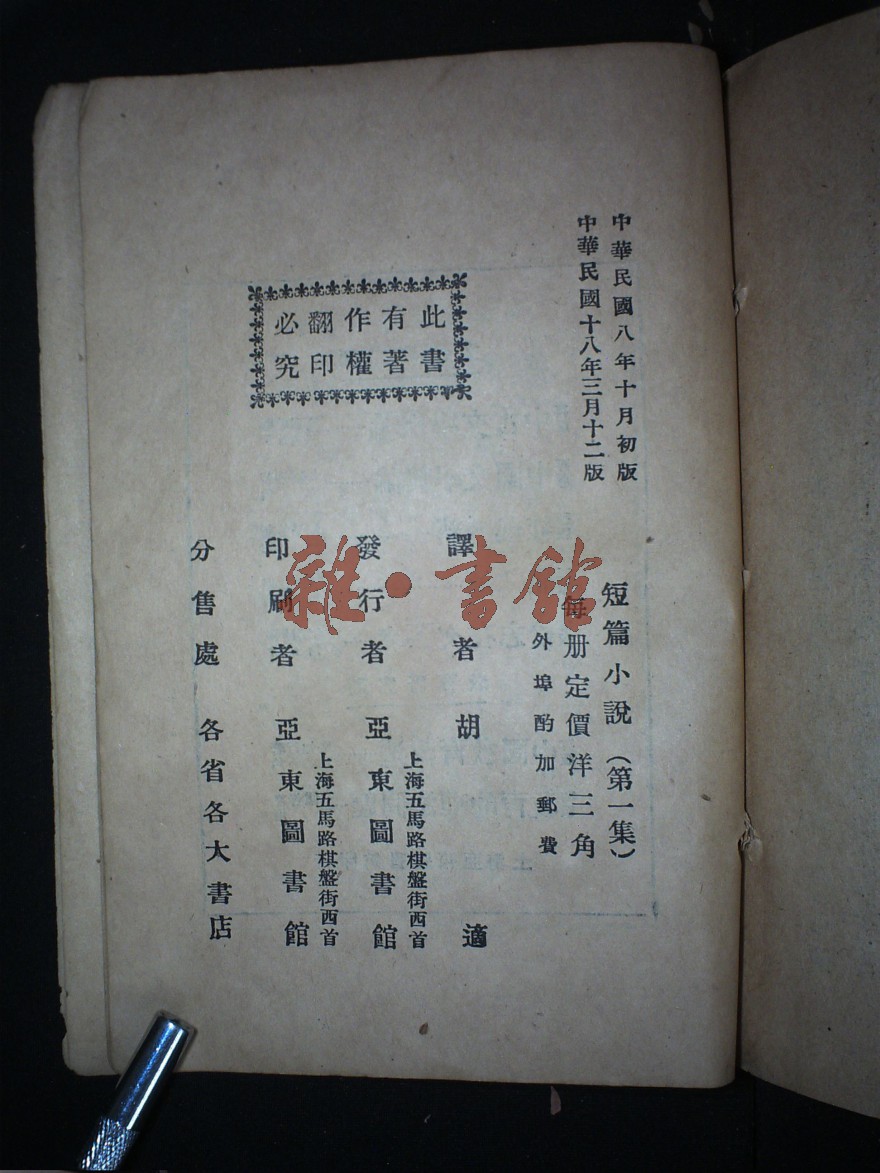 中華民國八年十月初版
中華民國十八年三月十二版
此書
有著
作權
翻印
必究
短篇小說（第一集）
每册定價洋三角
外埠酌加郵費
譯者 胡適
上海五馬路棋盤街西首
發行者 亞東圖書館
上海五馬路棋盤街西首
印刷者 亞東圖書館
分售處 各省各大書店
雜·書館